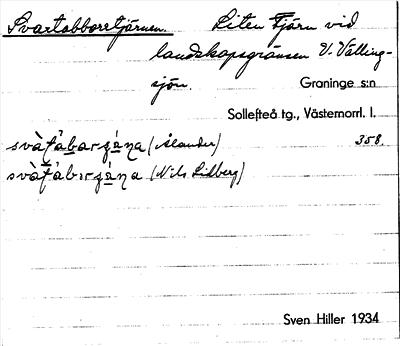 Svartabborrtjärnen. Liten Tjärn vid
landskapsgränsen V. Välling-
sjön. Graninge s:n
Sollefteå tg., Västernorrl. l.
(Ålander) 358.
(Nils Lidberg)
Sven Hiller 1934